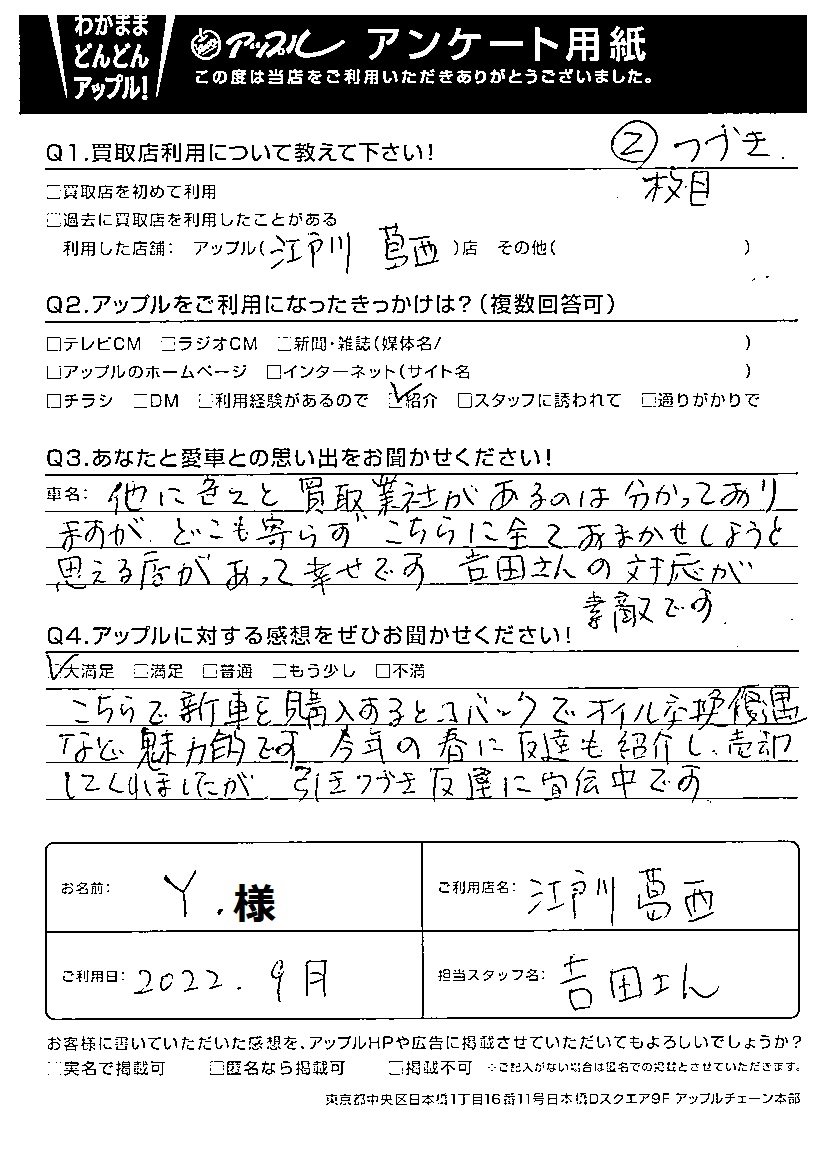 わがまま
どんどん
アップル!
アップル アンケート用紙
この度は当店をご利用いただきありがとうございました。
Q1.買取店利用について教えて下さい!
② つづき
枚目
□買取店を初めて利用
□過去に買取店を利用したことがある
利用した店舗: アップル(江戸川 葛西)店 その他( )
Q2.アップルをご利用になったきっかけは?(複数回答可)
□テレビCM □ラジオCM □新聞・雑誌(媒体名/ )
□アップルのホームページ □インターネット(サイト名 )
□チラシ □DM □利用経験があるので ☑紹介 □スタッフに誘われて □通りがかりで
Q3.あなたと愛車との思い出をお聞かせください!
車名: 他に色々と買取業社があるのは分かってあり
ますが、どこも寄らず こちらに全ておまかせしようと
思える店があって幸せです 吉田さんの対応が
素敵です
Q4.アップルに対する感想をぜひお聞かせください!
☑大満足 □満足 □普通 □もう少し □不満
こちらで新車を購入するとコバックでオイル交換優遇
など魅力的です 今年の春に友達も紹介し、売却
してくれましたが 引きつづき友達に宣伝中です
お名前: Y.様
ご利用店名: 江戸川 葛西
ご利用日: 2022.9月
担当スタッフ名: 吉田さん
お客様に書いていただいた感想を、アップルHPや広告に掲載させていただいてもよろしいでしょうか?
□実名で掲載可 □匿名なら掲載可 □掲載不可 ※ご記入がない場合は匿名での掲載とさせていただきます。
東京都中央区日本橋1丁目16番11号日本橋Dスクエア9F アップルチェーン本部